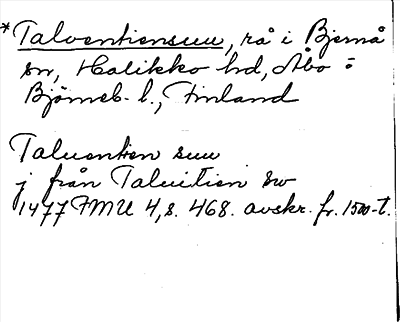 *Talventiensuu, rå i Bjernå
sn, Halikko hd, Åbo o
Björneb. l., Finland
Taluentien suu
j från Taluitien sw
1477 FMU 4, s. 468. avskr. fr. 1500-t.